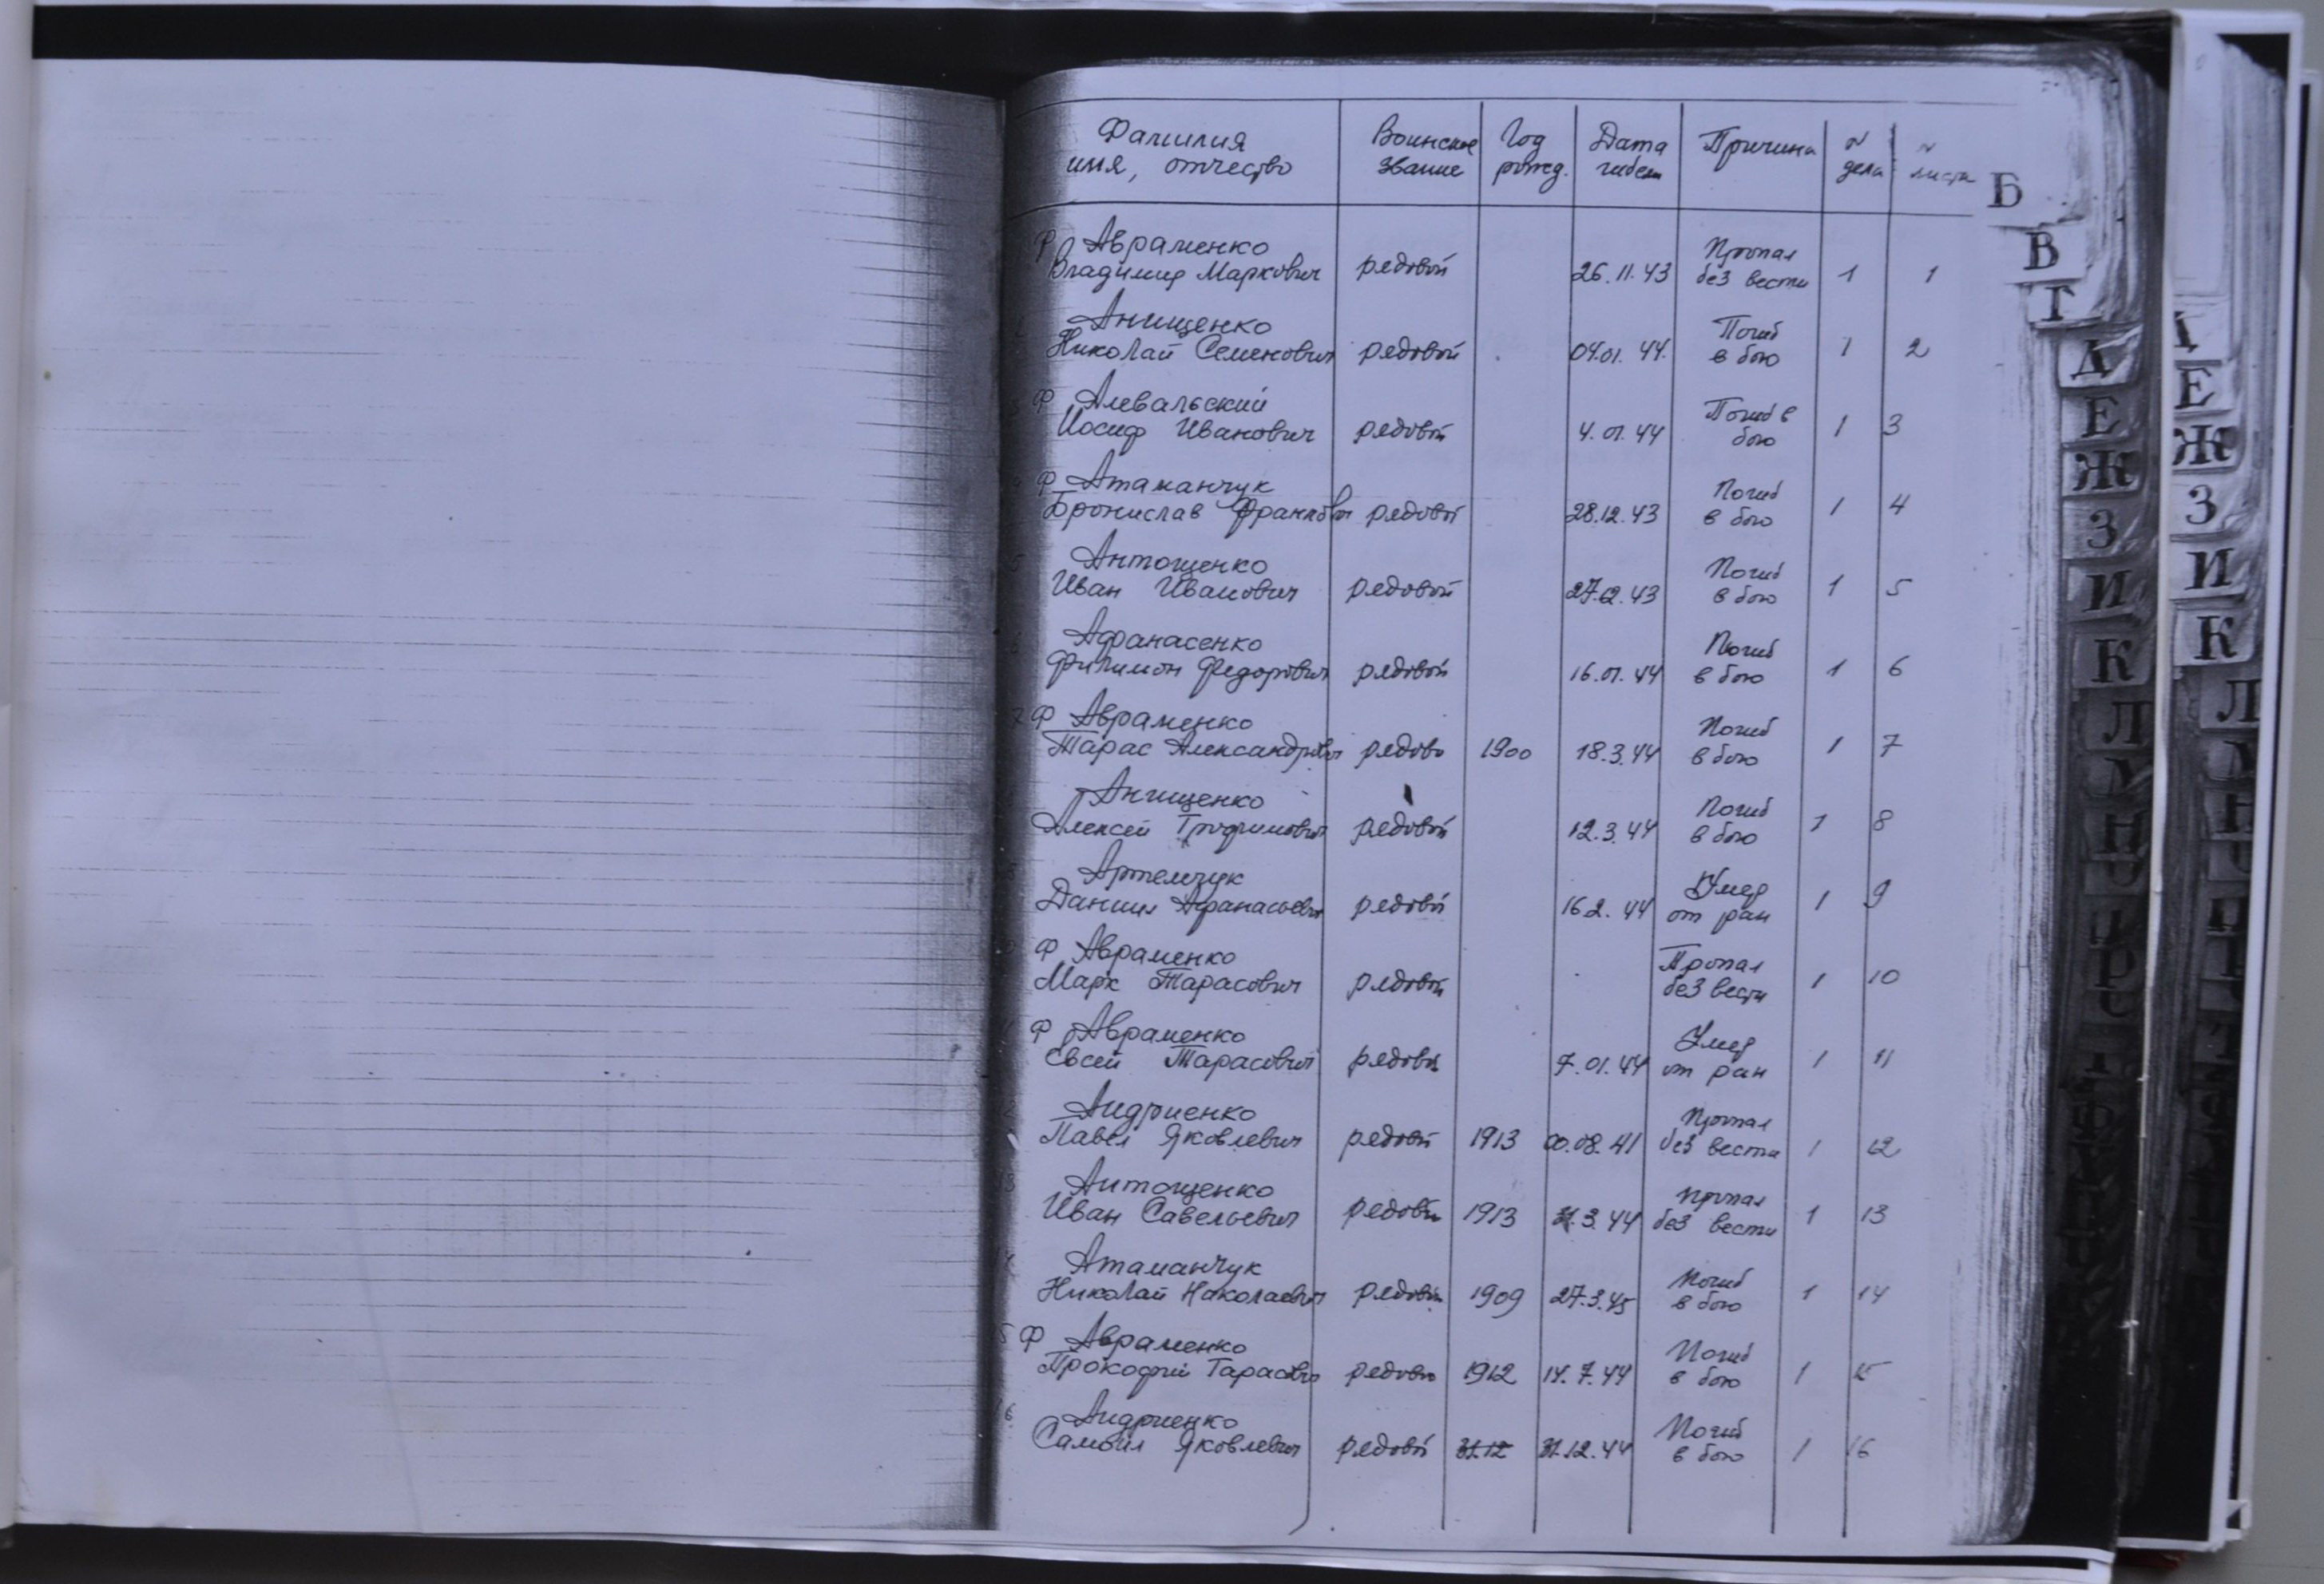 Фамилия имя, отчество Воинское звание Год рожд. Дата гибели Причина N дела N листа
Ф Авраменко
Владимир Маркович рядовой 26.11.43 Пропал без вести 1 1
Анищенко
Николай Семенович рядовой 04.01.44. Погиб в бою 1 2
Ф Алевальский
Иосиф Иванович рядовой 4.01.44 Погиб в бою 1 3
Ф Атаманчук
Бронислав Франкович рядовой 28.12.43 Погиб в бою 1 4
5 Антощенко
Иван Иванович рядовой 27.12.43 Погиб в бою 1 5
6 Афанасенко
Филимон Федорович рядовой 16.01.44 Погиб в бою 1 6
7 Ф Авраменко
Тарас Александрович рядовой 1900 18.3.44 Погиб в бою 1 7
Анищенко
Алексей Трофимович рядовой 12.3.44 Погиб в бою 1 8
Артемчук
Даниил Афанасьевич рядовой 16.2.44 Умер от ран 1 9
Ф Авраменко
Марк Тарасович рядовой Пропал без вести 1 10
Ф Авраменко
Евсей Тарасович рядовой 7.01.44 Умер от ран 1 11
Андриенко
Павел Яковлевич рядовой 1913 00.08.41 Пропал без вести 1 12
Антощенко
Иван Савельевич рядовой 1913 31.3.44 Пропал без вести 1 13
Атаманчук
Николай Николаевич рядовой 1909 27.3.45 Погиб в бою 1 14
5 Ф Авраменко
Прокофий Тарасович рядовой 1912 14.7.44 Погиб в бою 1 15
16 Андриенко
Самоил Яковлевич рядовой 31.12 31.12.44 Погиб в бою 1 16
Б
В
Г
Д
Е
Ж
З
И
К
Л
М
Н
Е
Ж
З
И
К
Л